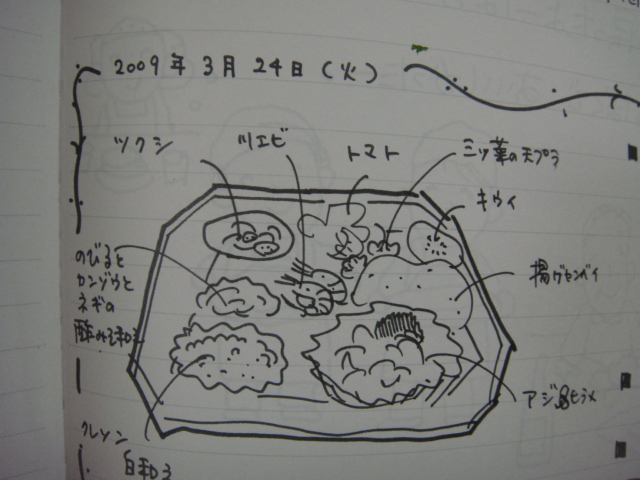 2009年 3月 24日(火)
ツクシ
ツエビ
トマト
三ツ葉の天プラ
キウイ
のびると
カンゾウと
ネギの
酢みそ和え
揚げセンベイ
アジ
ヒラメ
クレソン
白和え